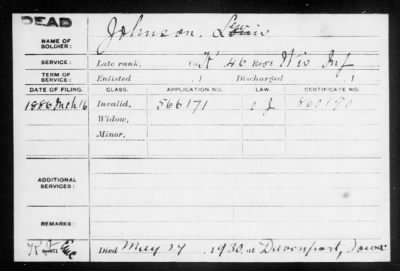 DEAD
NAME OF SOLDIER: Johnson, Lewis
SERVICE: Late rank, Co K 46 Reg't Wis Inf
TERM OF SERVICE: Enlisted , 1 Discharged , 1
DATE OF FILING. CLASS. APPLICATION NO. LAW. CERTIFICATE NO.
1886 Mch 16 Invalid, 566171
Widow,
Minor,
ADDITIONAL SERVICES:
REMARKS:
Died May 27, 1930, at Davenport, Iowa